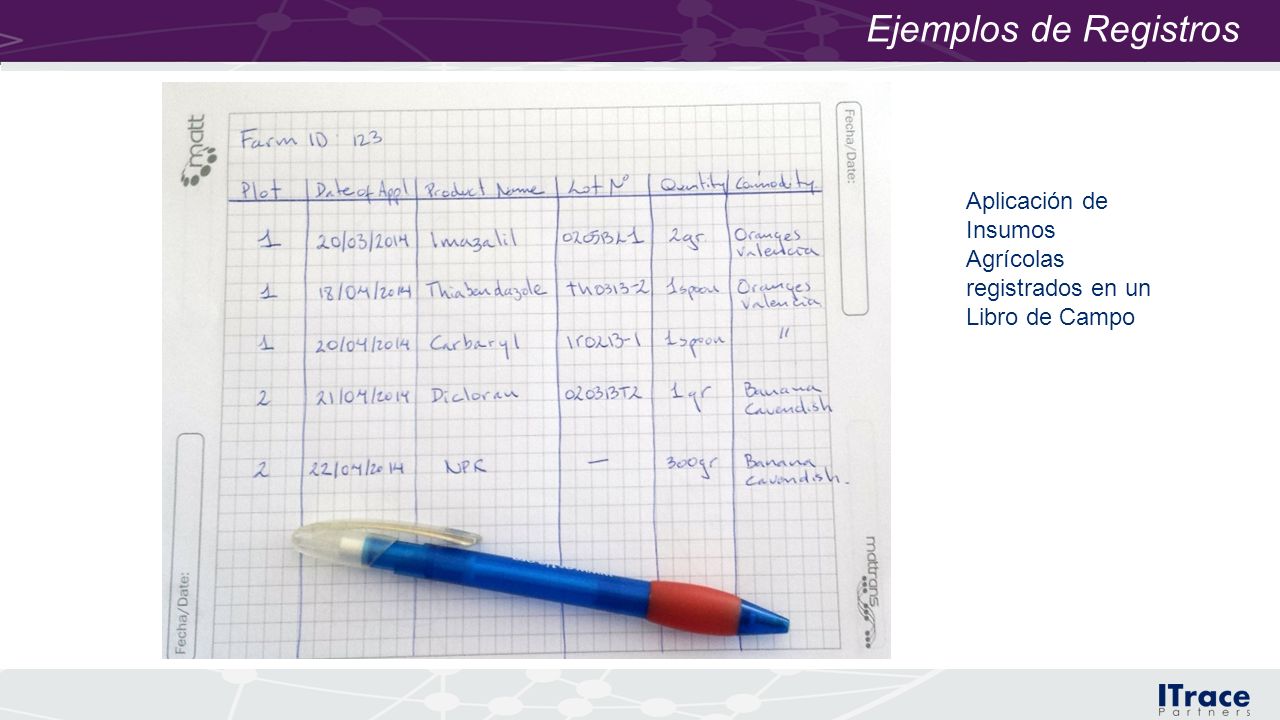 Ejemplos de Registros
matt
Fecha/Date:
Farm ID: 123
Plot Date of Appl Product Name Lot Nº Quantity Comodity
1 20/03/2014 Imazalil 0205BL1 2gr. Oranges
Valencia
1 18/04/2014 Thiabendazole tH0313-2 1 spoon Oranges
Valencia
1 20/04/2014 Carbaryl 1r0213-1 1 spoon "
2 21/04/2014 Dicloran 020313T2 1 gr Banana
Cavendish
2 22/04/2014 NPK — 300gr Banana
Cavendish.
Fecha/Date:
mattrans
Aplicación de
Insumos
Agrícolas
registrados en un
Libro de Campo
ITrace
Partners